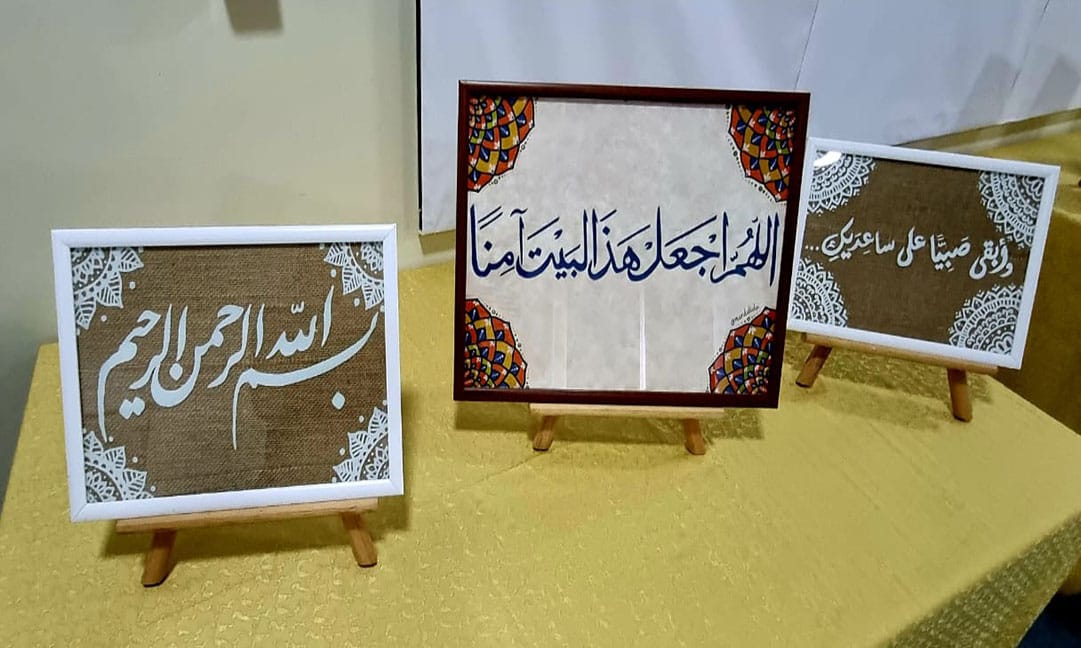 بسم الله الرحمن الرحيم
اللهُمَّ اجْعَلْ هَذَا البَيْتَ آمِنًا
وأبقى صَبِيًّا على ساعِدَيكِ...